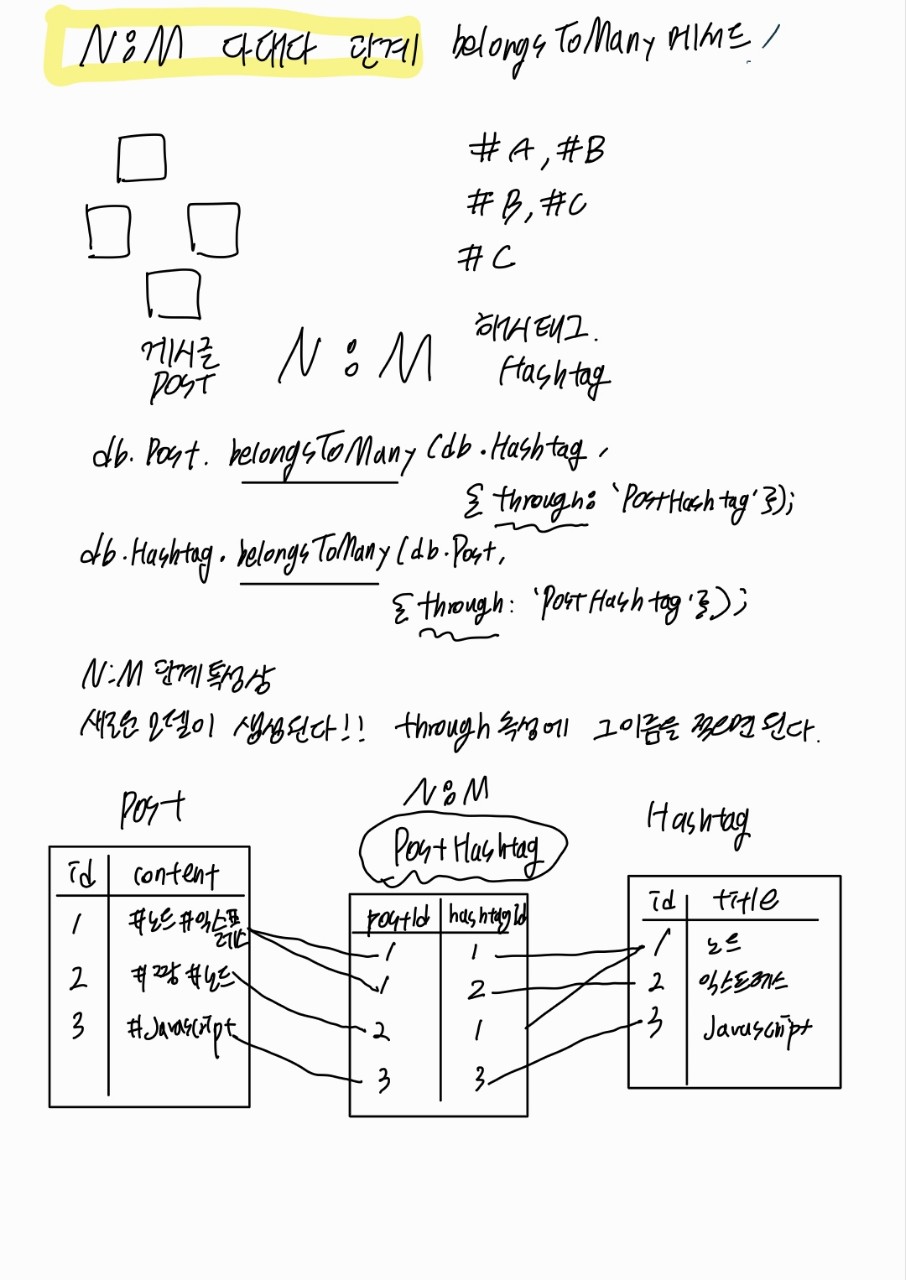 N:M 다대다 관계 belongsToMany 메서드
#A, #B
#B, #C
#C
게시글
Post
N:M
해시태그.
Hashtag
db.Post.belongsToMany(db.Hashtag,
{through: 'PostHashtag'});
db.Hashtag.belongsToMany(db.Post,
{through: 'PostHashtag'});
N:M 관계 특성상
새로운 모델이 생성된다!! through 속성에 그 이름을 적으면 된다.
Post
id content
1 #노드 #익스프
레스
2 #짱 #노드
3 #Javascript
N:M
PostHashtag
postId hashtagId
1 1
1 2
2 1
3 3
Hashtag
id title
1 노드
2 익스프레스
3 Javascript